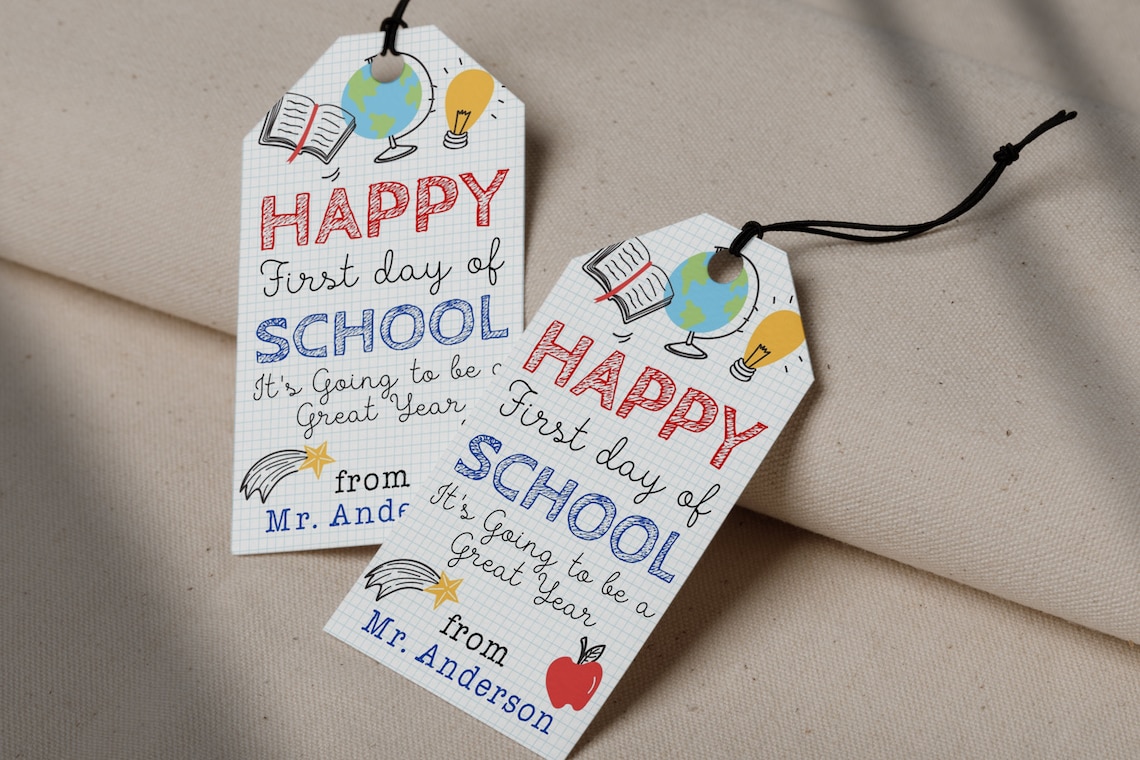 HAPPY
First day of
SCHOOL
It's Going to be
Great Year
from
Mr. Ande
HAPPY
First day of
SCHOOL
It's Going to be a
Great Year
from
Mr. Anderson